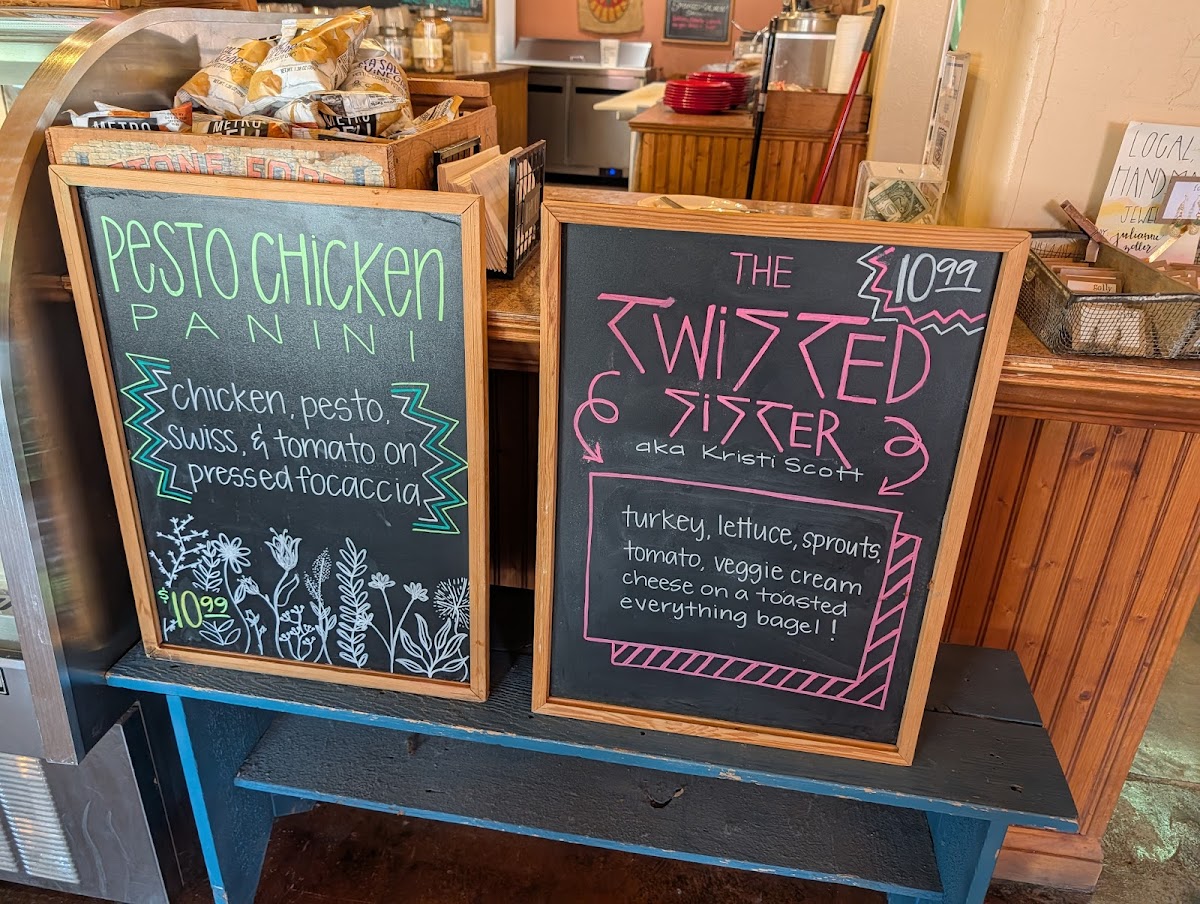 PESTO CHICKEN
PANINI
chicken, pesto,
swiss, & tomato on
pressed focaccia
$10.99
THE
TWISTED
SISTER
10.99
aka Kristi Scott
turkey, lettuce, sprouts,
tomato, veggie cream
cheese on a toasted
everything bagel!
METRO
METRO
SEA SALT
LOCAL
HANDMA
JEWE
julianne